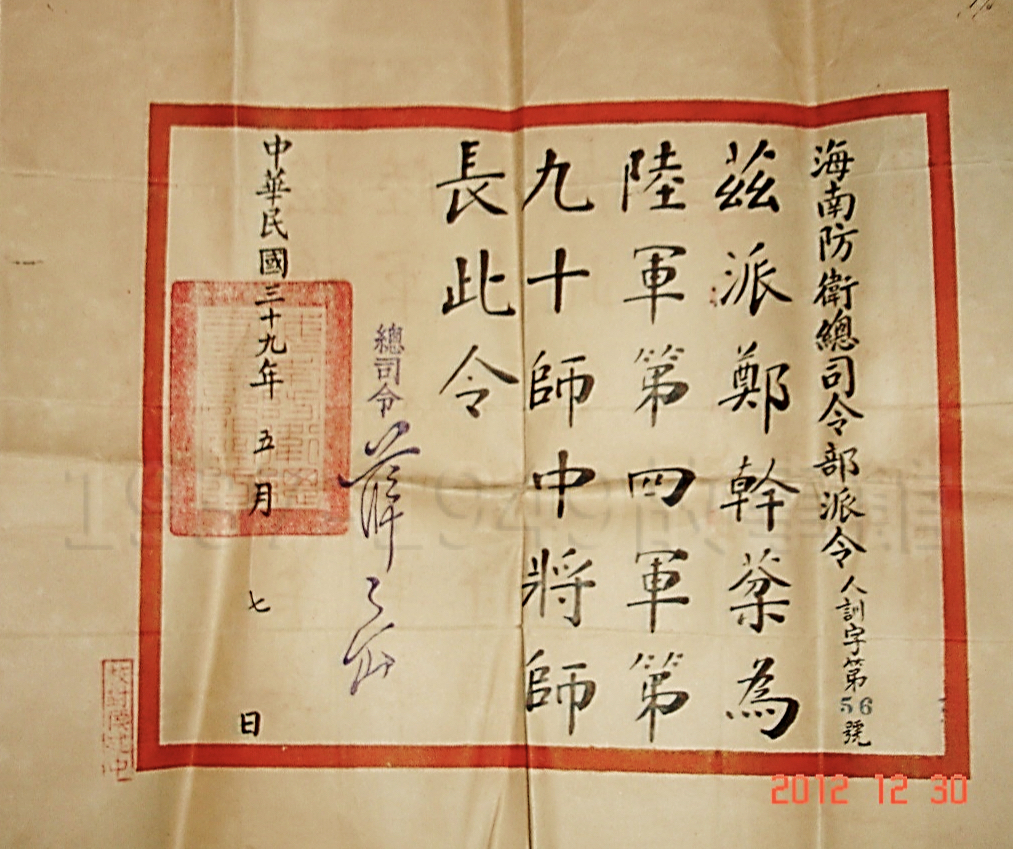 海南防衛總司令部派令 人訓字第56號
茲派鄭幹棻為
陸軍第四軍第
九十師中將師
長此令
總司令 薛岳
中華民國三十九年五月七日
校對
2012 12 30